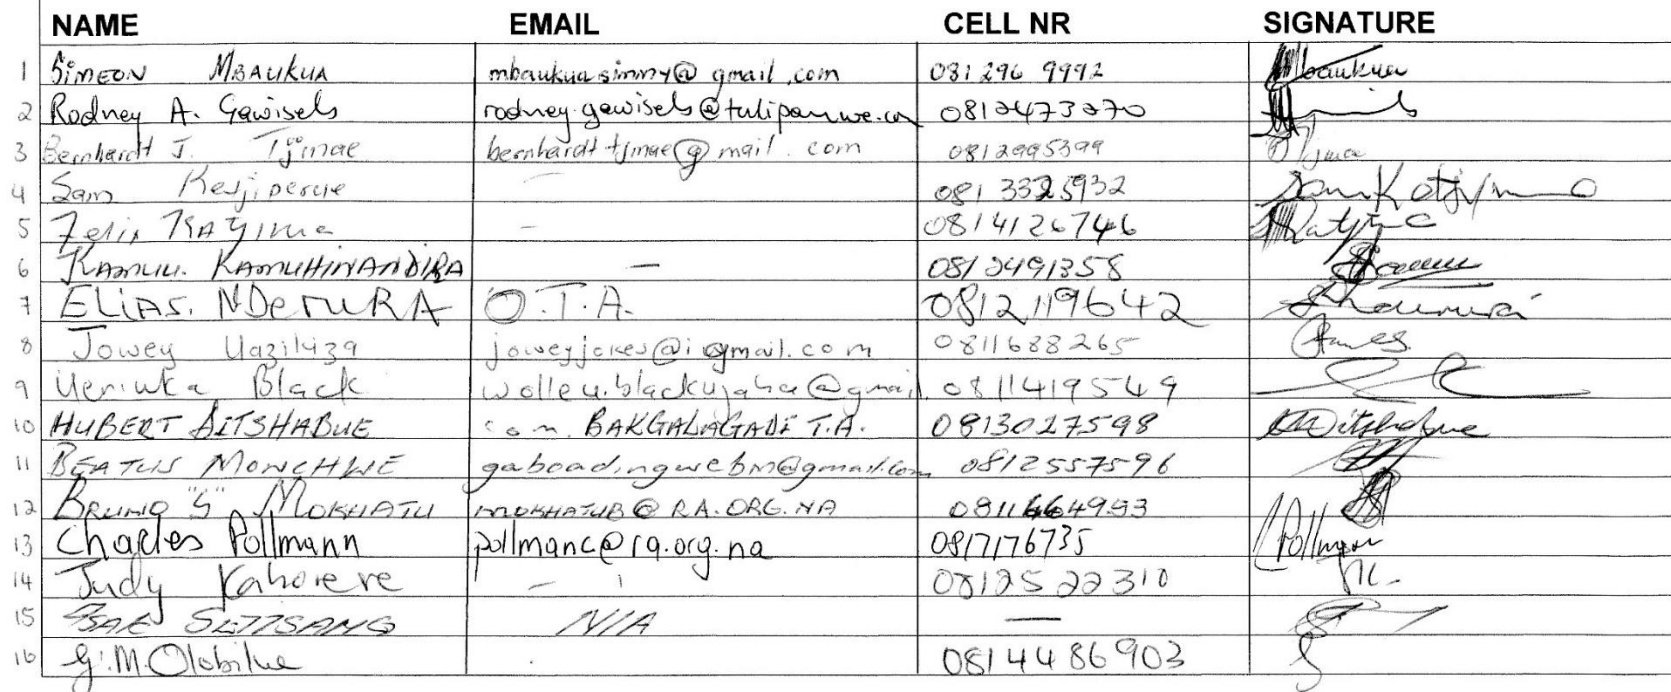 NAME EMAIL CELL NR SIGNATURE
1 SIMEON MBAUKUA mbaukua.simmy@gmail.com 081 296 9992 Mbaukua
2 Rodney A. Gawisels rodney.gawisels@tulipamwe.com 0812473270
3 Bernhardt J. Tjimae bernhardt tjmae@mail.com 0812995399
4 Sam 081 3325932
5 Felix 0814126746
6 KAMUU. KAMUHINANDIRA — 0812491358
7 ELIAS. NDemuRA O.T.A. 0812119642
8 Jowey joweyjakes@i gmail.com 0811688265
9 Black 0811419549
10 HUBERT DITSHABUE com. BAKGALAGADI T.A. 0813027598 Ditshabue
11 BEATUS MONCHWE gaboadingwebm@gmail.com 0812557596
12 BRUNO "S" MOKHATU MOKHATUB@RA.ORG.NA
13 Charles Pollmann pollmanc@ra.org.na 0817176735 CPollmann
14 Judy — 0812522310
15 N/A —
16 G.M. 0814486903